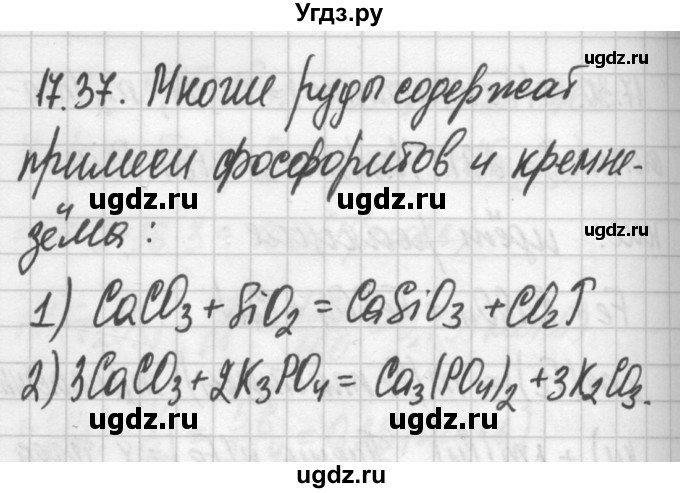 Угдз.ру
ugdz.ru
17.37. Многие руды содержат
ugdz.ru
примеси фосфоритов и кремне-
ugdz.ru ugdz.ru
зёма:
ugdz.ru
1) CaCO3 + SiO2 = CaSiO3 + CO2↑
ugdz.ru
2) 3CaCO3 + 2K3PO4 = Ca3(PO4)2 + 3K2CO3.
ugdz.ru ugdz.ru
ugdz.ru